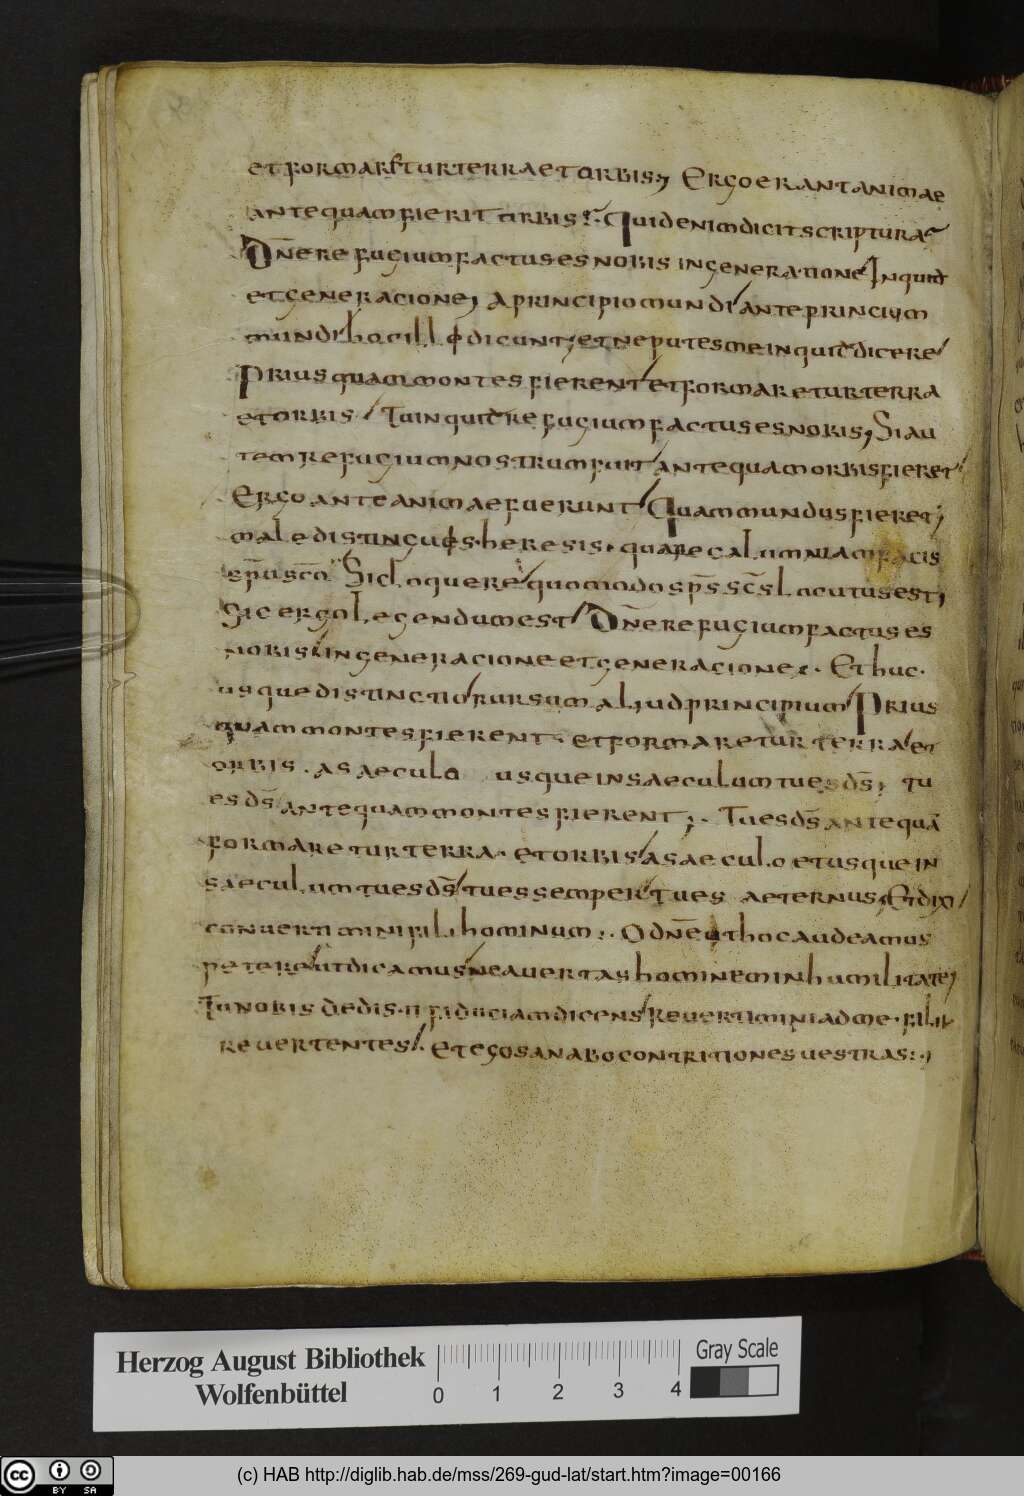 et formaretur terra et orbis; Ergo erant animae
antequam fierit orbis; Quid enim dicit scriptura
Dn̄e refugium factus es nobis in generatione Inquid
et generacione, a principio mundi ante principium
mundi hoc illi dicunt; et ne putes me inquid dicere
Prius quam montes fierent et formaretur terra
et orbis / Tu inquid refugium factus es nobis, Si au
tem refugium nostrum fuit antequam orbis fieret
Ergo ante animae fuerunt Quam mundus fieret;
male distinguis heresis. quare calumniam facis
sp̄u sc̄o. Sic loquere quomodo sp̄s sc̄s locutus est;
Sic ergo legendum est Dn̄e refugium factus es
nobis in generacione et generacione. Et huc
usque distinctio rursum aliud principium Prius
quam montes fierent. et formaretur terra et
orbis. a saeculo usque in saeculum tu es ds̄; tu
es ds̄ antequam montes fierent; Tu es ds̄ antequā
formaretur terra. et orbis a saeculo et usque in
saeculum tu es ds̄ tu es semper Tu es aeternus; Et dixi
conuertimini fili hominum; O dn̄e uthoc audeamus
petere ut dicamus ne auertas hominem in humilitate;
Tu nobis dedisti fiduciam dicens Reuertimini ad me. filii
reuertentes. Et ego sanabo contritiones uestras;
Herzog August Bibliothek
Wolfenbüttel
0 1 2 3 4
Gray Scale
cc BY SA
(c) HAB http://diglib.hab.de/mss/269-gud-lat/start.htm?image=00166